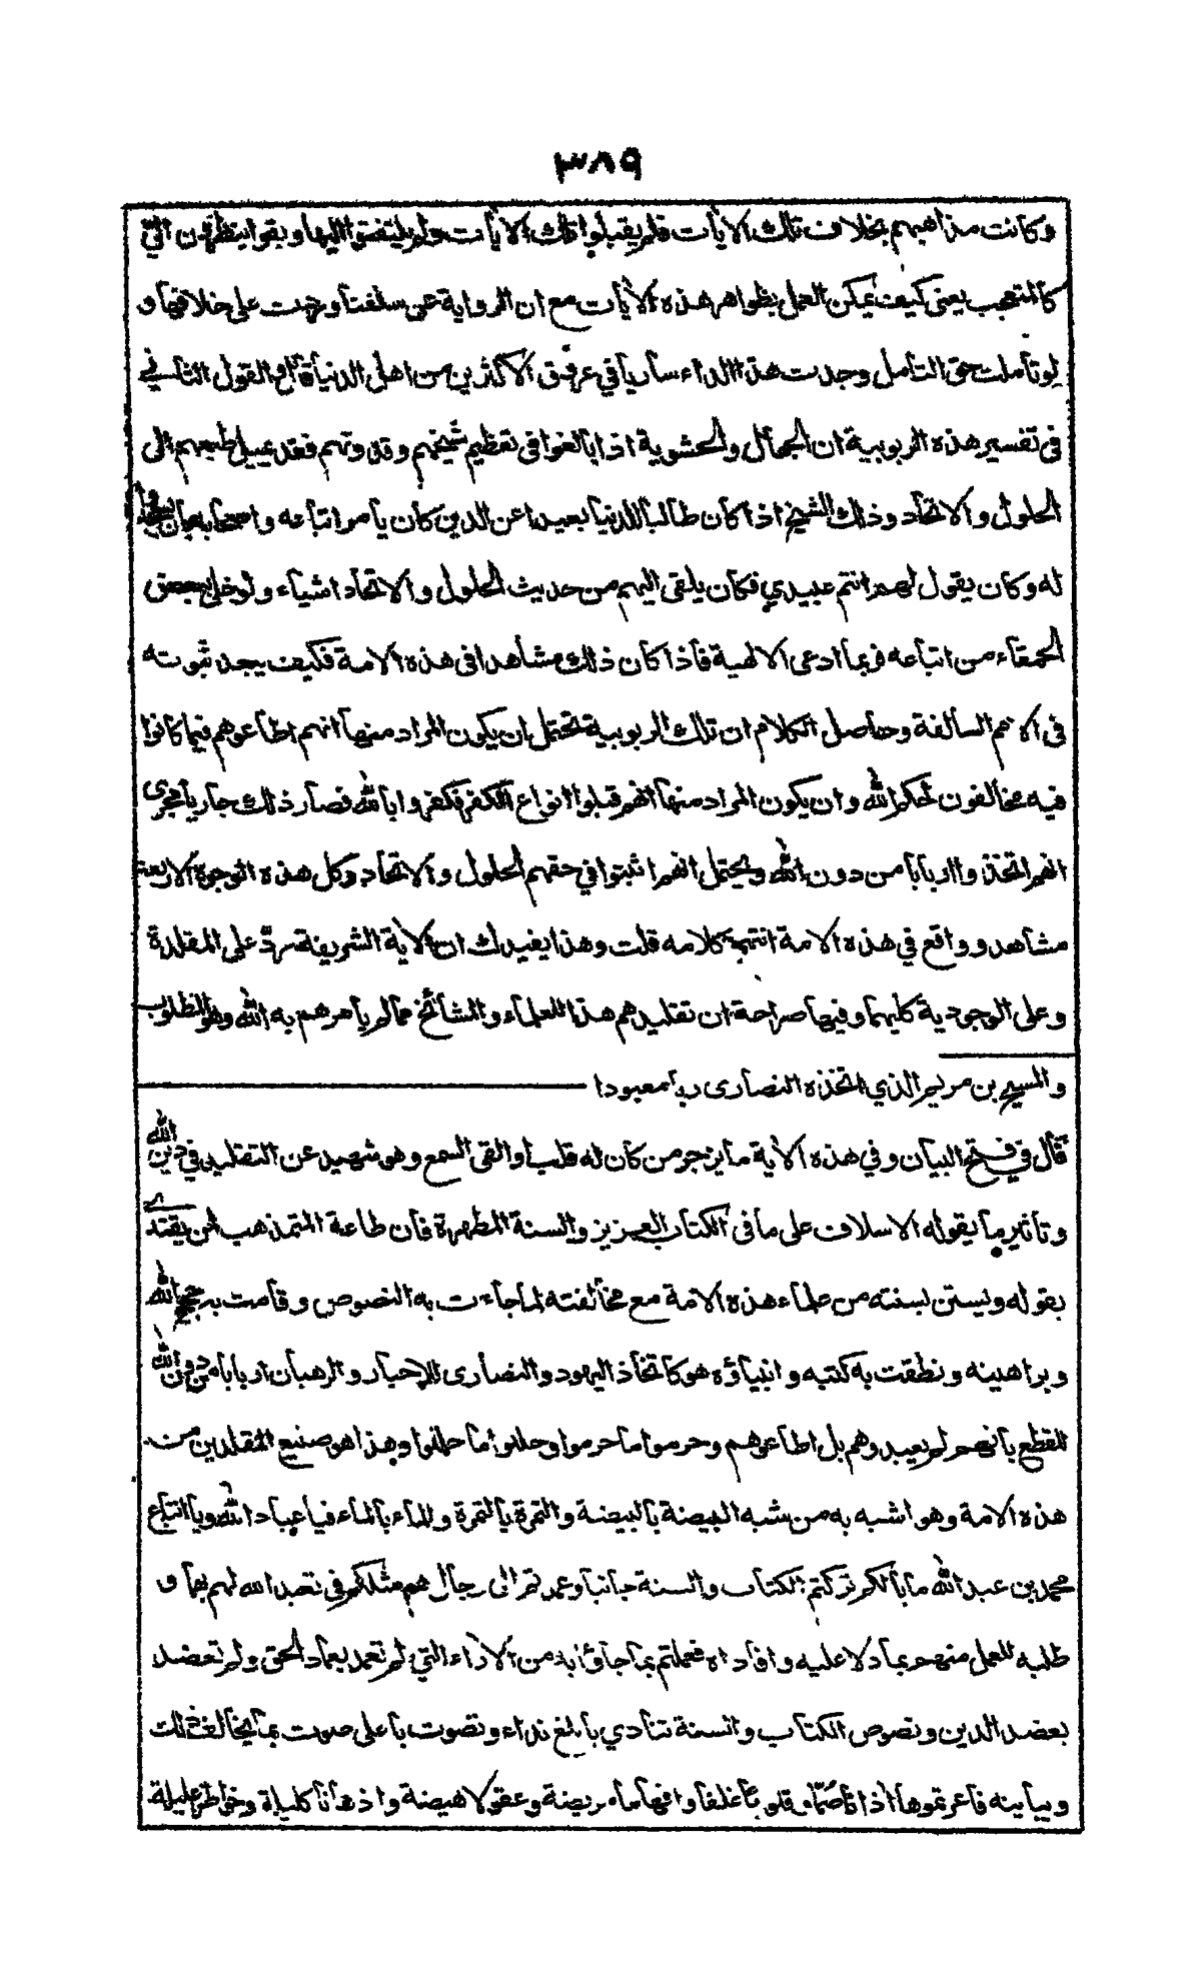 ٣٨٩
وكانت مذاهبهم بخلاف تلك الآيات فلم يقبلوا تلك الآيات ولم يلتفتوا اليها وبقوا ينظرون الي
كالمتعجب يعنى كيف يمكن العمل بظواهر هذه الآيات مع ان الرواية عن سلفنا وردت على خلافها و
لو تأملت حق التأمل وجدت هذا الداء ساريا في عروق الاكثرين من اهل الدنيا القول الثاني
في تفسير هذه الربوبية ان الجهال والحشوية اذا بالغوا في تعظيم شيخهم وقدوتهم فقد يميل طبعهم الى
الحلول والاتحاد وذلك الشيخ اذا كان طالبا للدنيا بعيدا عن الدين كان يأمر اتباعه واصحابه بان يسجدوا
له وكان يقول لهم انتم عبيدي فكان يلقى اليهم من حديث الحلول والاتحاد اشياء ولو خلى ببعض
الحمقاء من اتباعه فربما ادعى الالهية فاذا كان ذلك مشاهدا في هذه الامة فكيف يبعد ثبوته
في الامم السالفة وحاصل الكلام ان تلك الربوبية تحتمل ان يكون المراد منها انهم اطاعوهم فيما كانوا
فيه مخالفون لحكم الله وان يكون المراد منها انهم قبلوا انواع الكفر فكفروا بالله فصار ذلك جاريا مجرى
انهم اتخذوا اربابا من دون الله ويحتمل انهم اثبتوا في حقهم الحلول والاتحاد وكل هذه الوجوه الاربعة
مشاهد وواقع في هذه الامة انتهى كلامه قلت وهذا يفيدك ان الآية الشريفة ترد على المقلدة
وعلى الوجودية كليهما وفيها صراحة ان تقليدهم هذا للعلماء والمشائخ مما لم يأمرهم به الله وهو المطلوب
والمسيح بن مريم الذي اتخذه النصارى ربا معبودا
قال في فتح البيان وفي هذه الآية ما يزجر من كان له قلب او القى السمع وهو شهيد عن التقليد في دين الله
وتأثير ما يقوله الاسلاف على ما في الكتاب العزيز والسنة المطهرة فان طاعة المتمذهب لمن يقتدي
بقوله ويستن بسنته من علماء هذه الامة مع مخالفته لما جاءت به النصوص وقامت به حجج الله
وبراهينه ونطقت به كتبه وانبياؤه هو كاتخاذ اليهود والنصارى للاحبار والرهبان اربابا من دون الله
للقطع بانهم لم يعبدوهم بل اطاعوهم وحرموا ما حرموا وحللوا ما حللوا وهذا هو صنيع المقلدين من
هذه الامة وهو اشبه به من شبه البيضة بالبيضة والتمرة بالتمرة والماء بالماء فيا عباد الله ويا اتباع
محمد بن عبد الله ما بالكم تركتم الكتاب والسنة جانبا وعمدتم الى رجال هم مثلكم في تعبد الله لهم بهما و
طلبه للعمل منهم بما دلا عليه وافاداه فعملتم بما جاؤا به من الآراء التي لم تعمد بعماد الحق ولم تعضد
بعضد الدين ونصوص الكتاب والسنة تنادي بابلغ نداء وتصوت باعلى صوت بما يخالف ذلك
ويباينه فاعرتموها اذانا صما وقلوبا غلفا وافهاما مريضة وعقولا مهيضة واذهانا كليلة وخواطر عليلة